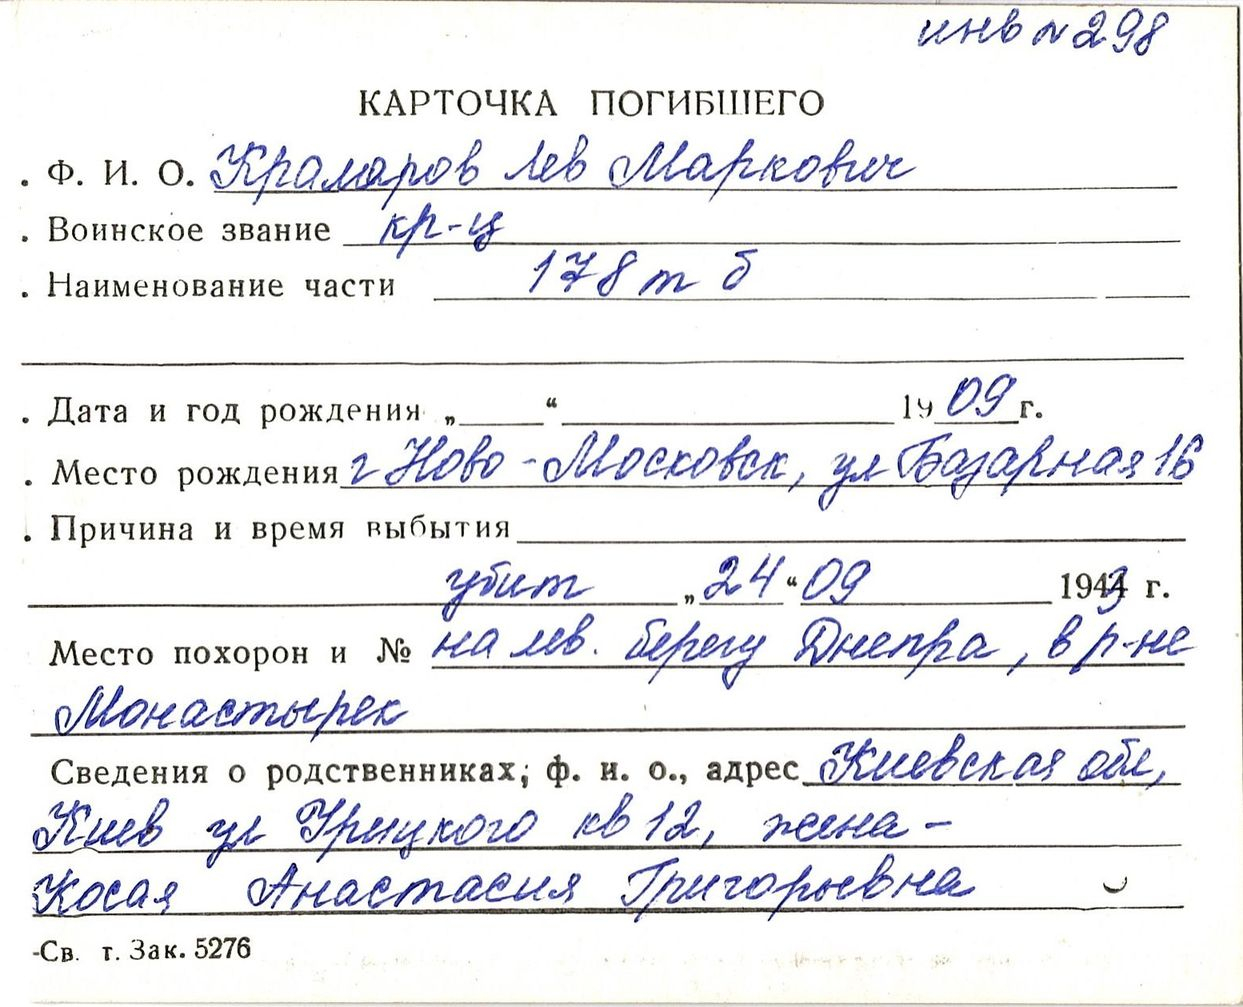 инв № 298
КАРТОЧКА ПОГИБШЕГО
. Ф. И. О. Крамаров Лев Маркович
. Воинское звание кр-ц
. Наименование части 178 т б
. Дата и год рождения „ “ 1909 г.
. Место рождения г Ново-Московск, ул Базарная 16
. Причина и время выбытия
убит „24“ 09 1943 г.
Место похорон и № на лев. берегу Днепра, в р-не
Монастырек
Сведения о родственниках, ф. и. о., адрес Киевская обл,
Киев ул Урицкого кв 12, жена -
Косая Анастасия Григорьевна
-Св. т. Зак. 5276